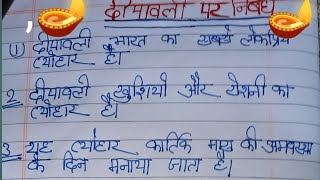 दीपावली पर निबंध
① दीपावली भारत का सबसे लोकप्रिय
त्योहार है।
2 दीपावली खुशियो और रोशनी का
त्योहार है।
3 यह त्योहार कार्तिक मास की अमवस्या
के दिन मनाया जाता है।